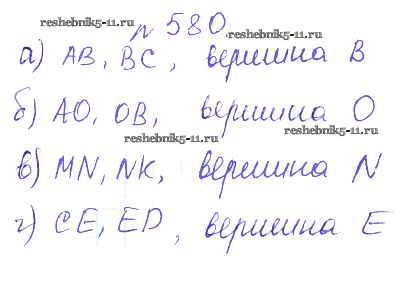 reshebnik5-11.ru
№ 580.
reshebnik5-11.ru
а) AB, BC, вершина B
б) AO, OB, вершина O
reshebnik5-11.ru
reshebnik5-11.ru
в) MN, NK, вершина N
г) CE, ED, вершина E
reshebnik5-11.ru